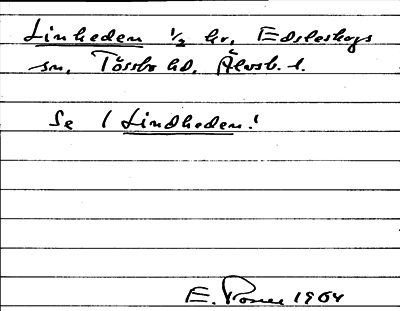 Linheden 1/2 hr, Edsleskogs
sn, Tössbo hd, Älvsb. l.
Se / Lindheden!
E. 1904